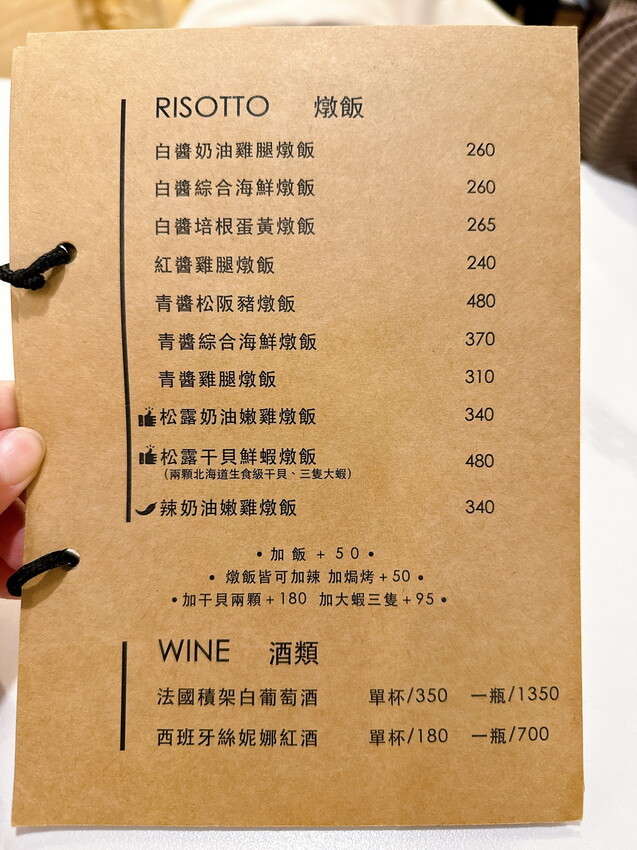 RISOTTO 燉飯
白醬奶油雞腿燉飯 260
白醬綜合海鮮燉飯 260
白醬培根蛋黃燉飯 265
紅醬雞腿燉飯 240
青醬松阪豬燉飯 480
青醬綜合海鮮燉飯 370
青醬雞腿燉飯 310
松露奶油嫩雞燉飯 340
松露干貝鮮蝦燉飯 480
（兩顆北海道生食級干貝、三隻大蝦）
辣奶油嫩雞燉飯 340
• 加飯 + 50 •
• 燉飯皆可加辣 加焗烤+50 •
•加干貝兩顆+180 加大蝦三隻+95•
WINE 酒類
法國積架白葡萄酒 單杯/350 一瓶/1350
西班牙絲妮娜紅酒 單杯/180 一瓶/700